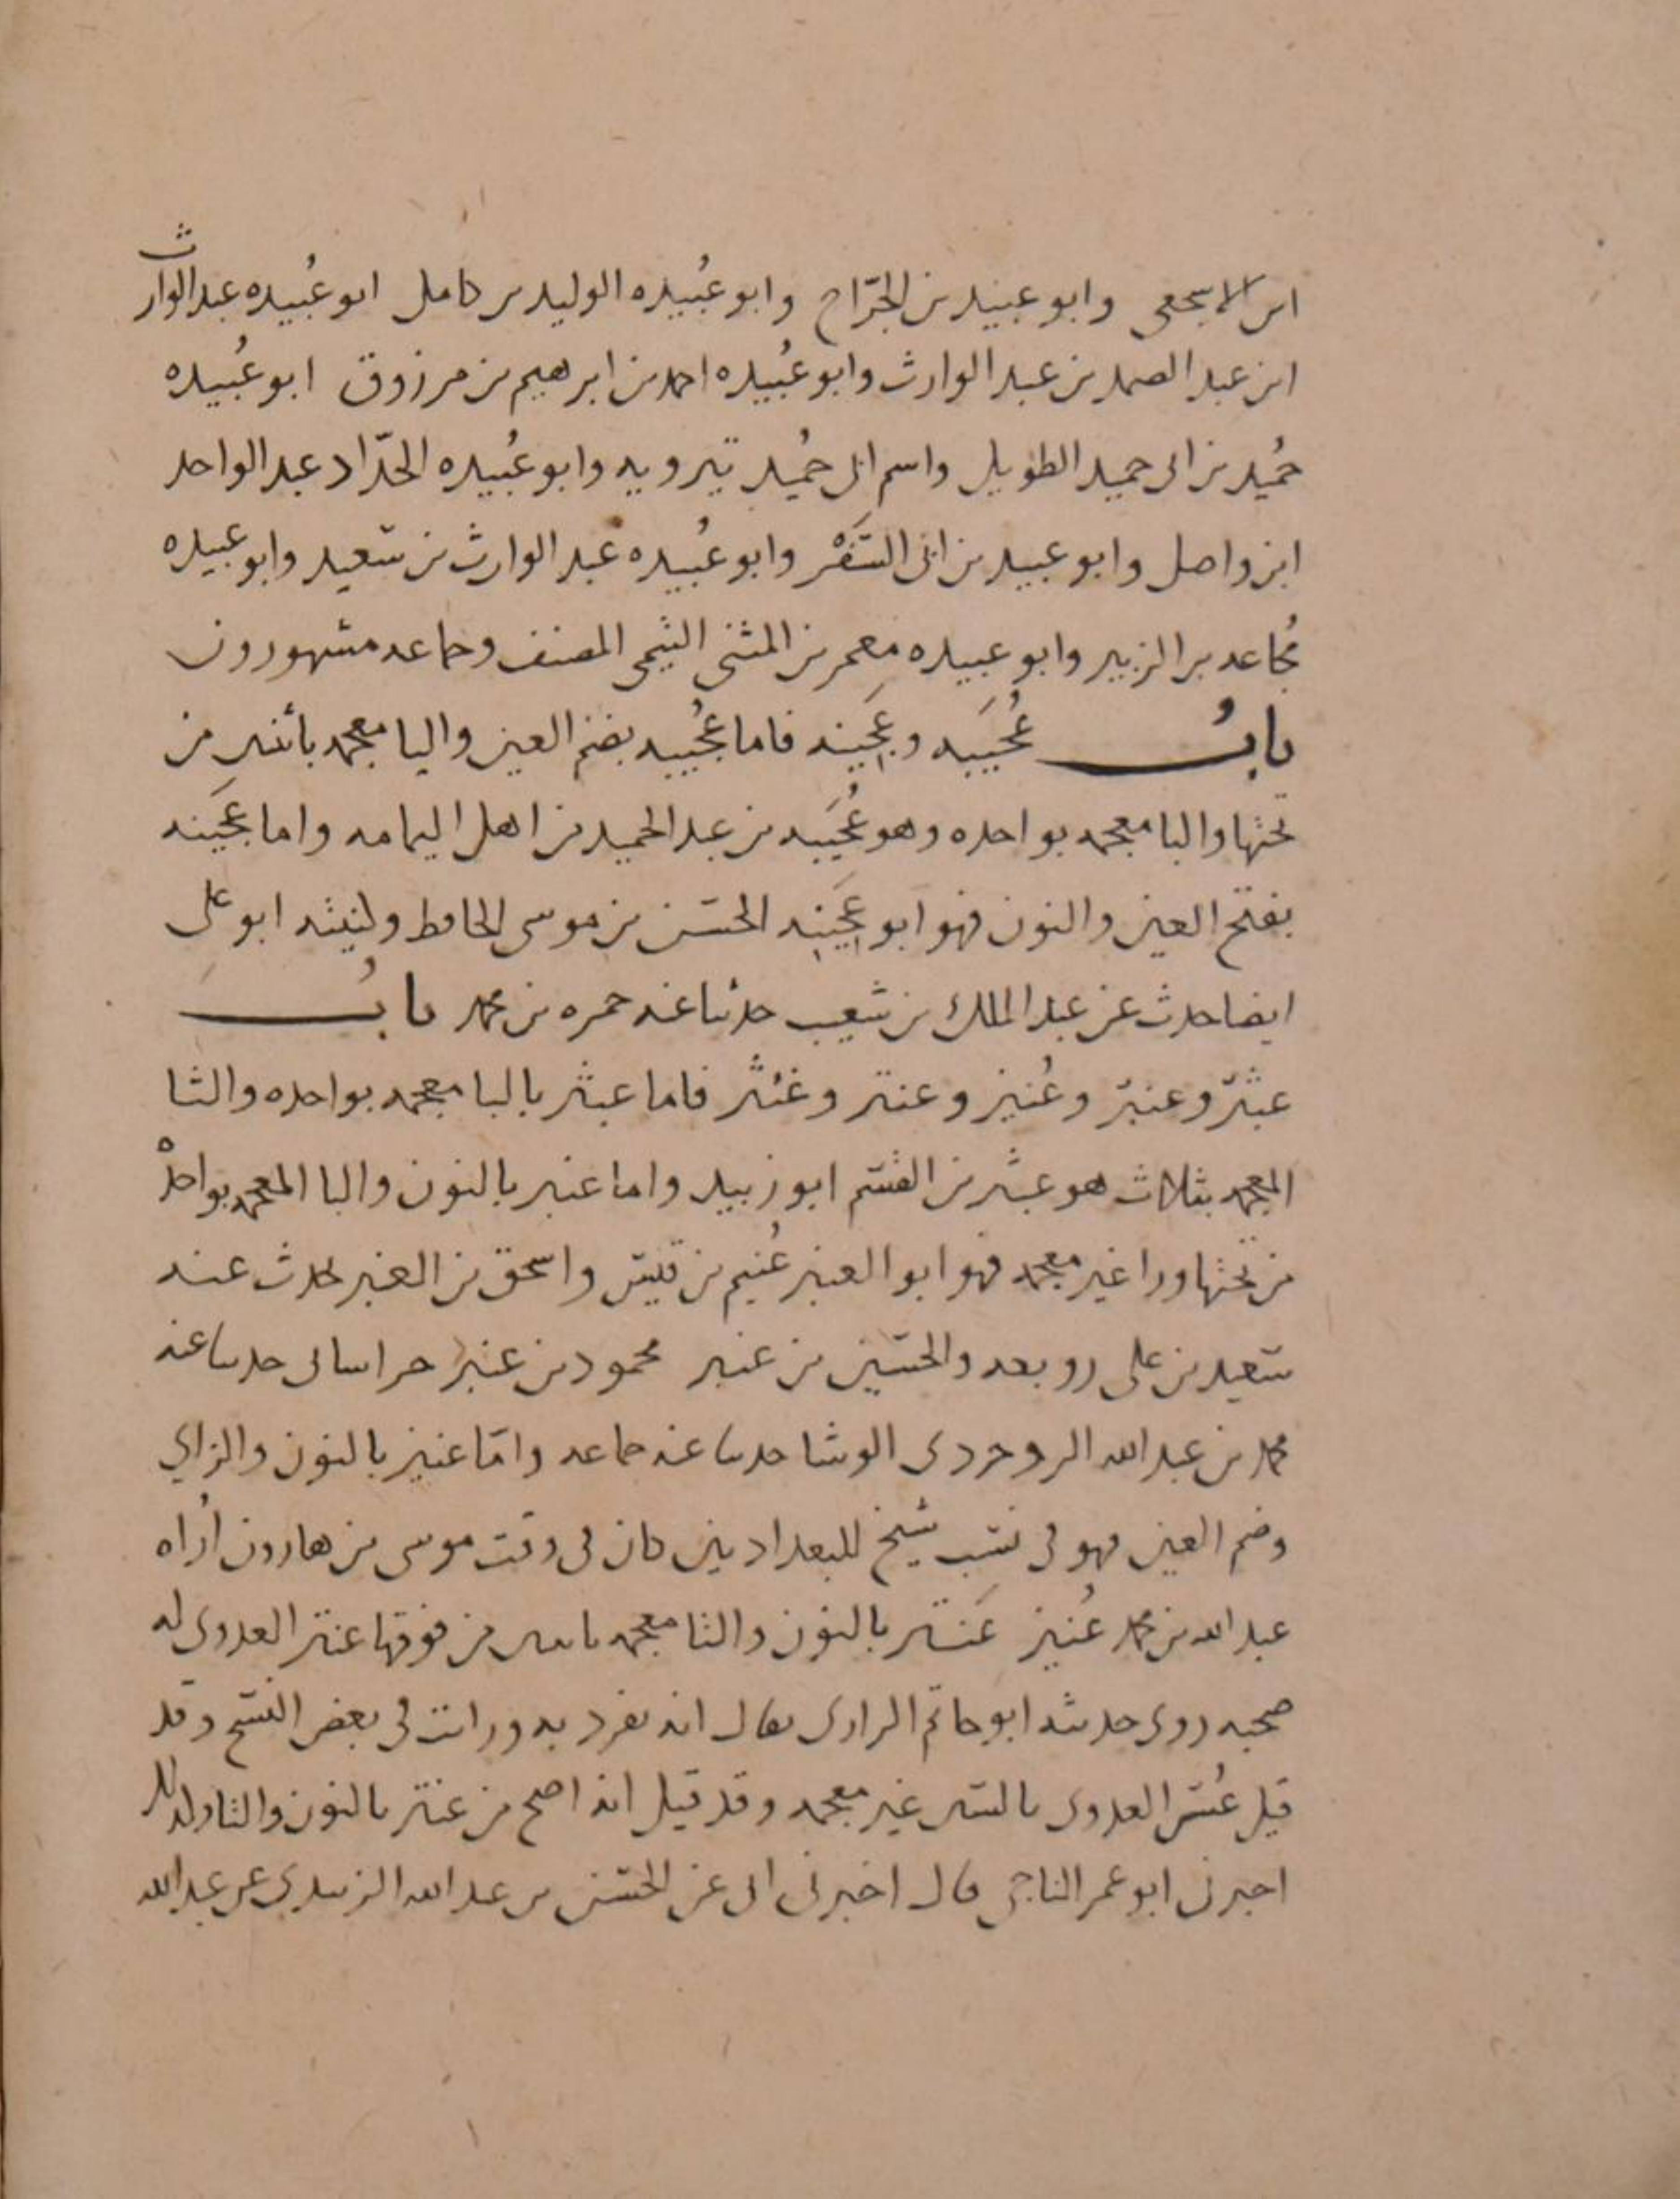 ابن الاشجعي وابو عبيد بن الجرّاح وابو عُبيده الوليد بن كامل ابو عُبيده عبد الوارث
ابن عبد الصمد بن عبد الوارث وابو عُبيده احمد بن ابرهيم بن مرزوق ابو عُبيده
حُميد بن ابي حميد الطويل واسم ابي حُميد تيرويه وابو عُبيده الحدّاد عبد الواحد
ابن واصل وابو عبيد بن ابي السَّفَر وابو عُبيده عبد الوارث بن سعيد وابو عبيده
مُجاعه بن الزبير وابو عبيده معمر بن المثنى التيمي المصنف وجماعه مشهورون
بابُ عُجَيبَه وعَجِينه فاما عُجيبه بضم العين واليا معجمه باثنين من
تحتها والبا معجمه بواحده وهو عُجَيبه بن عبد الحميد من اهل اليمامه واما عَجينه
بفتح العين والنون فهو ابو عَجِينه الحسن بن موسى الحافظ وكنيته ابو علي
ايضا حدث عن عبد الملك بن شعيب حدثنا عنه حمزه بن محمد بابُ
عبثر وعنبر وعُنيز وعنتر وغنثر فاما عبثر بالبا معجمه بواحده والثا
المعجمه بثلاث هو عبثر بن القسم ابو زبيد واما عنبر بالنون والبا المعجمه بواحدْه
من تحتها ورا غير معجمه فهو ابو العنبر غُنيم بن قيس واسحق بن العنبر يحدث عنه
سعيد بن علي روبعه والحسين بن عنبر محمود بن عنبر خراساني حدثنا عنه
محمد بن عبد الله الوشا حدثنا عنه جماعه وامّا عنيز بالنون والزاي
وضم العين فهو في نسب شيخ للبغداديين كان في وقت موسى بن هارون اُراه
عبد الله بن محمد عُنيز عَنتر بالنون والتا معجمه باثنين من فوقها عنتر العدوي له
صحبه روى حديثه ابو حاتم الرازي يقال انه تفرد به ورايت في بعض النسخ وقد
قيل عُس العدوي بالسين غير معجمه وقد قيل انه اصح من عنتر بالنون والتا
اخبرني ابو عمر الناجي قال اخبرني ابي عن الحسن بن عبد الله الزبيدي عن عبد الله